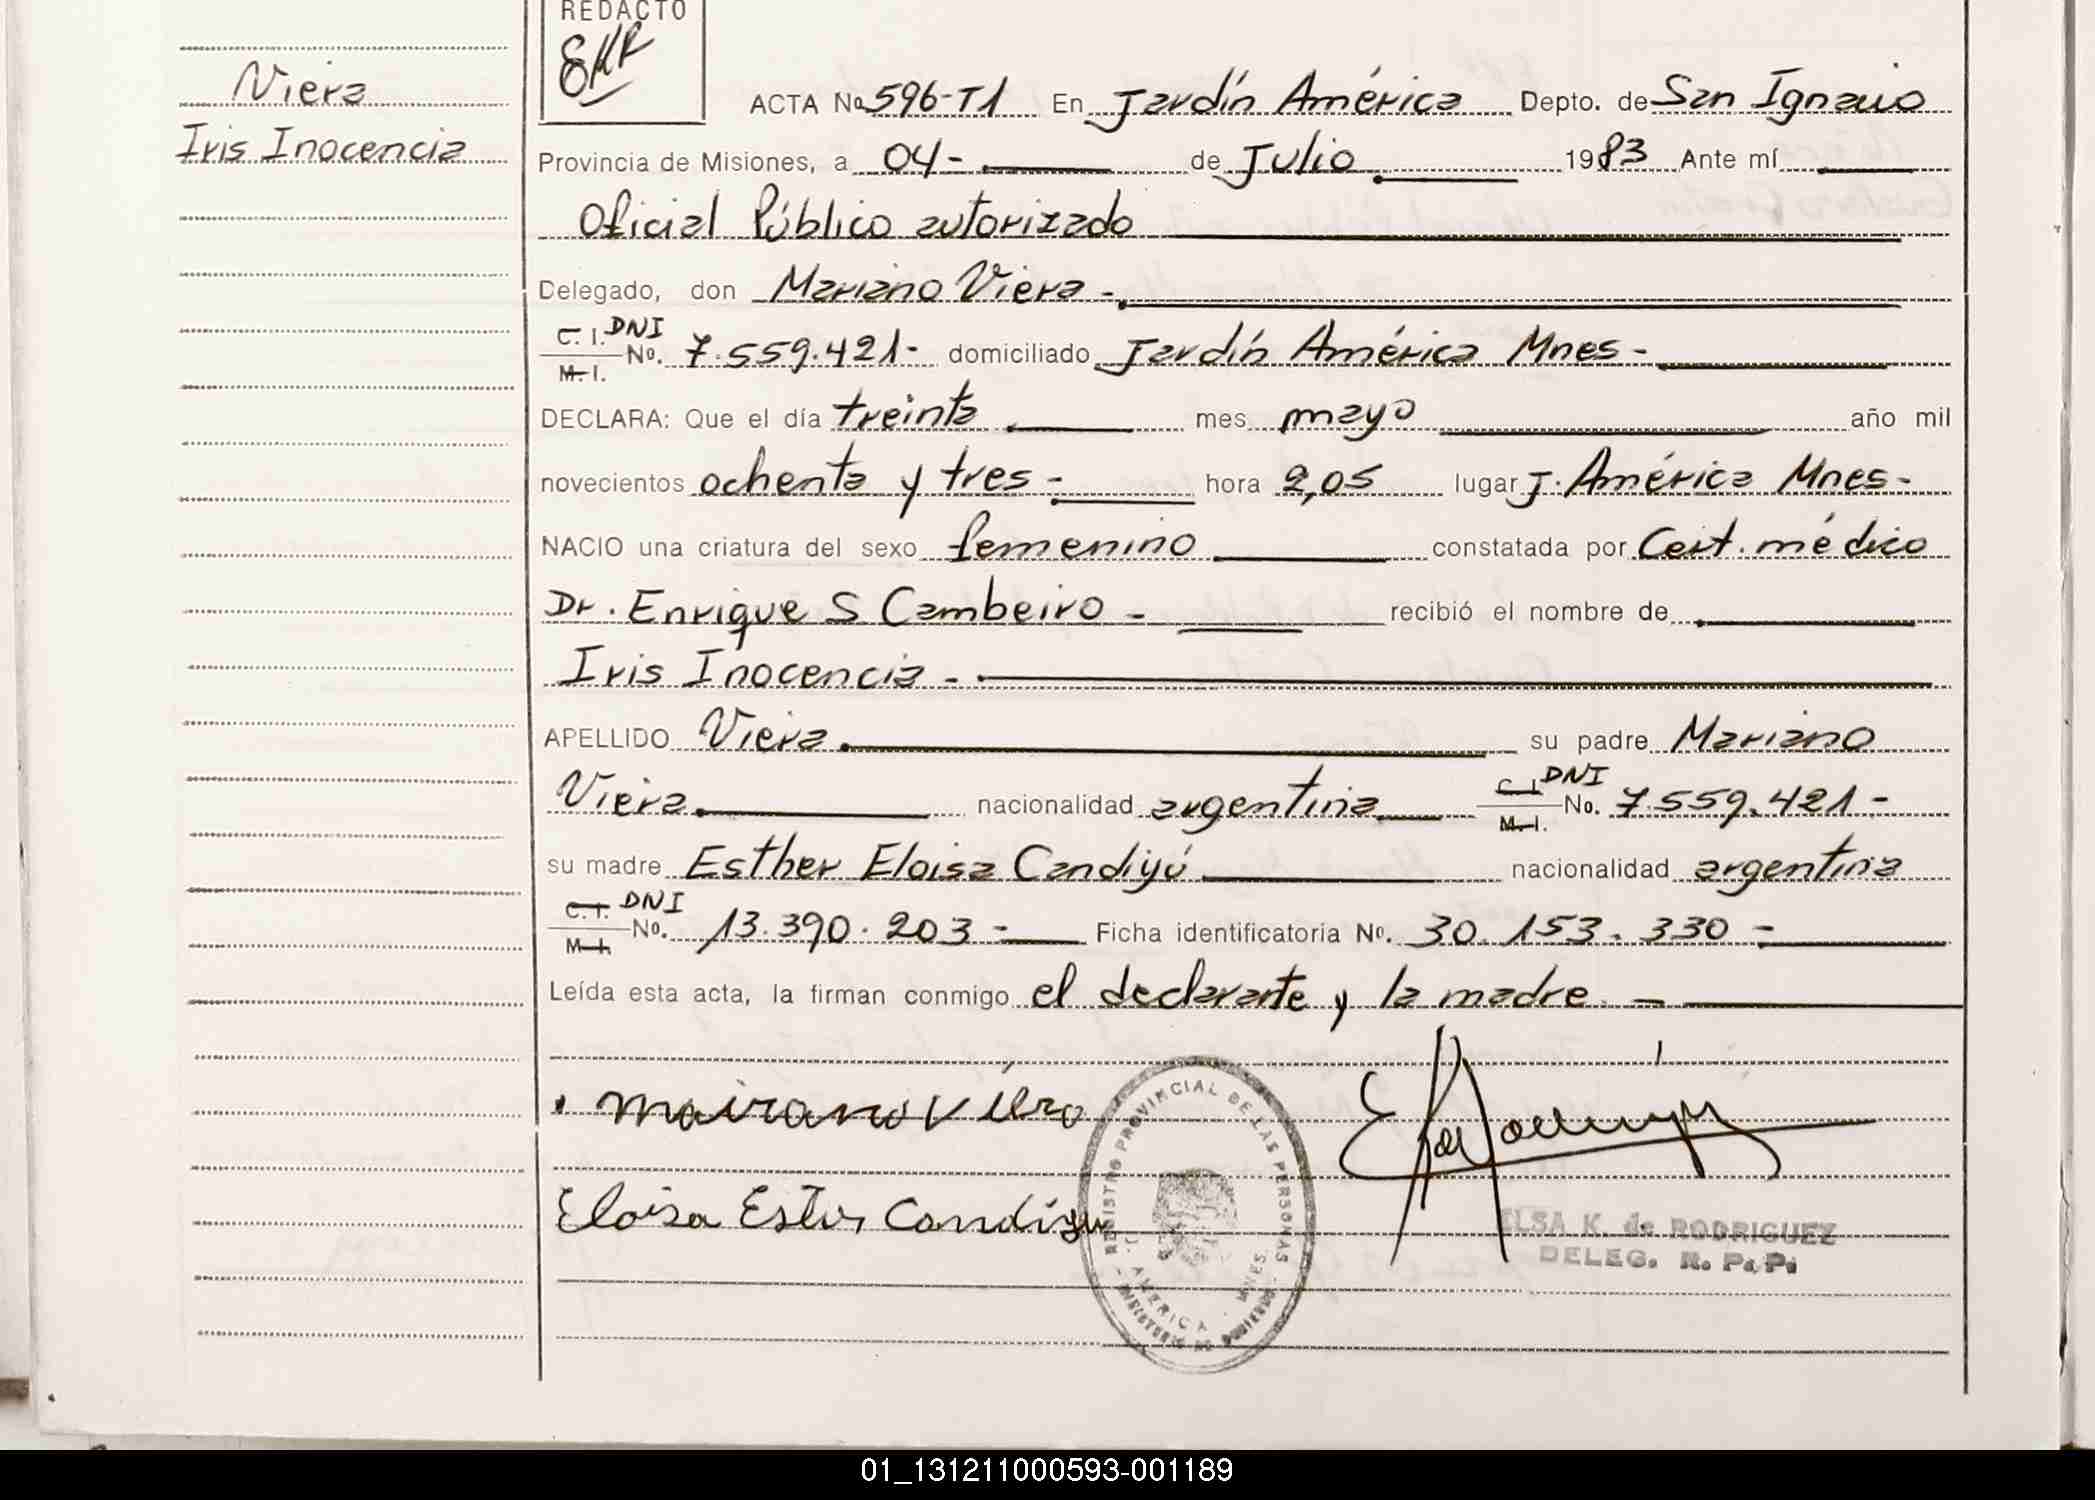 REDACTO
EKR
Viera
Iris Inocencia
ACTA No 596-T1 En Jardín América Depto. de San Ignacio
Provincia de Misiones, a 04- de Julio 1983 Ante mí
Oficial Público autorizado
Delegado, don Mariano Viera -
C. I. DNI
No. 7.559.421- domiciliado Jardín América Mnes-
M. I.
DECLARA: Que el día treinta mes mayo año mil
novecientos ochenta y tres- hora 2,05 lugar J. América Mnes-
NACIO una criatura del sexo femenino constatada por Cert. médico
Dr. Enrique S Cambeiro - recibió el nombre de
Iris Inocencia -
APELLIDO Viera su padre Mariano
Viera nacionalidad argentina C. I. DNI No. 7.559.421-
M. I.
su madre Esther Eloisa Candiyú nacionalidad argentina
C. I. DNI
No. 13.390.203- Ficha identificatoria No. 30.153.330-
M. I.
Leída esta acta, la firman conmigo el declarante y la madre. -
mairano Viera
Eloisa Ester Candiyu
REGISTRO PROVINCIAL DE LAS PERSONAS
J. AMERICA - MNES.
ELSA K. de RODRIGUEZ
DELEG. R. P. P.
01_131211000593-001189